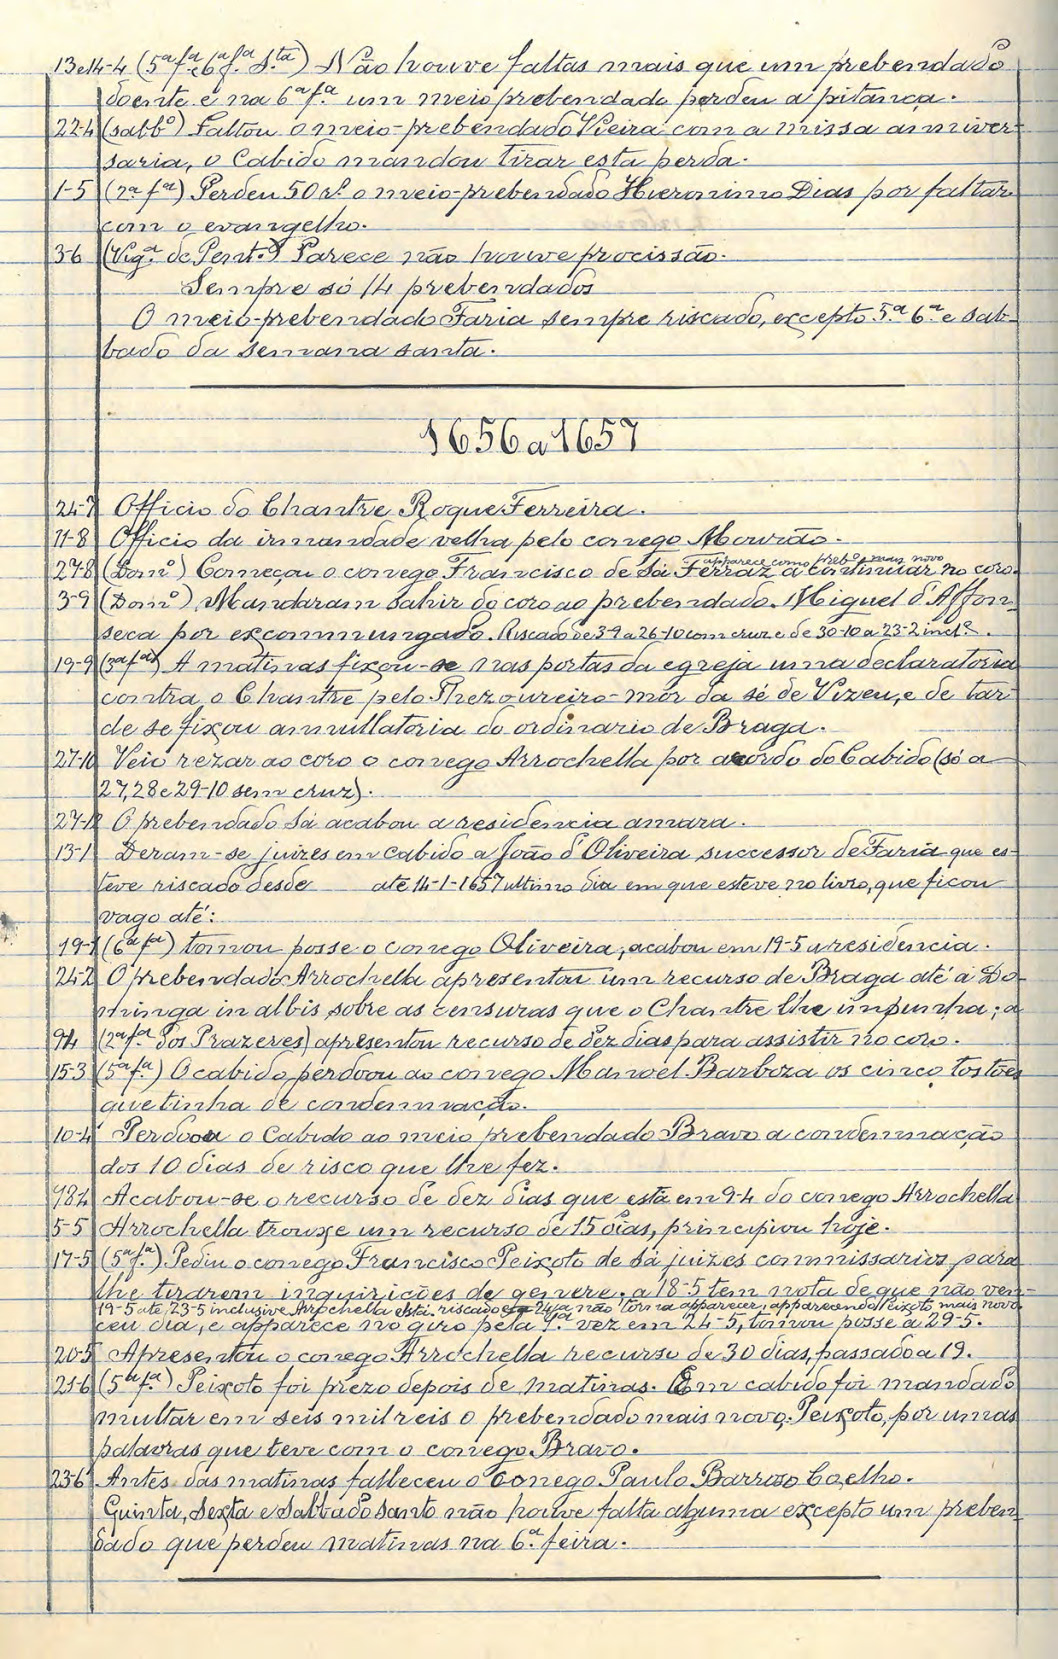 13e14-4 (5ª fª e 6ª fª Stª) Não houve faltas mais que um prebendado
doente e na 6ª fª um meio prebendado perdeu a pitança.
22-4 (sabbº) Faltou o meio-prebendado Vieira com a missa anniver-
saria, o Cabido mandou tirar esta perda.
1-5 (2ª fª) Perdeu 50 rs o meio-prebendado Hieronimo Dias por faltar
com o evangelho.
3-6 (Vigª de Pent.) Parece não houve procissão.
Sempre só 14 prebendados
O meio-prebendado Faria sempre riscado, excepto 5ª 6ª e sab-
bado da semana santa.
1656 a 1657
24-7 Officio do Chantre Roque Ferreira.
11-8 Officio da irmandade velha pelo conego Mourão.
apparece como prebº mais novo
27-8 (Domº) Começou o conego Francisco de Sá Ferraz a continuar no coro.
3-9 (Domº) Mandaram sahir do coro ao prebendado Miguel d'Affon-
seca por excommungado. Riscado de 3-9 a 26-10 com cruz e de 30-10 a 23-2 inclº.
19-9 (3ª fª) A matinas fixou-se nas portas da egreja uma declaratoria
contra o Chantre pelo Thezoureiro-mór da sé de Vizeu, e de tar-
de se fixou annullatoria do ordinario de Braga.
27-10 Veio rezar ao coro o conego Arrochella por acordo do Cabido (só a
27, 28 e 29-10 sem cruz).
27-12 O prebendado Sá acabou a residencia amara.
13-1 Deram-se juizes em cabido a João d'Oliveira successor de Faria que es-
teve riscado desde até 14-1-1657 ultimo dia em que esteve no livro, que ficou
vago até:
19-1 (6ª fª) tomou posse o conego Oliveira, acabou em 19-5 a residencia.
24-2 O prebendado Arrochella apresentou um recurso de Braga até á Do-
minga in albis sobre as censuras que o Chantre lhe impunha; a
9-4 (2ª fª dos Prazeres) apresentou recurso de dez dias para assistir no coro.
15-3 (5ª fª) O cabido perdoou ao conego Manoel Barboza os cinco tostões
que tinha de condemnação.
10-4 Perdoou o Cabido ao meio prebendado Bravo a condemnação
dos 10 dias de risco que lhe fez.
18-4 Acabou-se o recurso de dez dias que está em 9-4 do conego Arrochella
5-5 Arrochella trouxe um recurso de 15 dias, principiou hoje.
17-5 (5ª fª) Pediu o conego Francisco Peixoto de Sá juizes commissarios para
lhe tirarem inquirições de genere; a 18-5 tem nota de que não ven-
19-5 até 23-5 inclusive Arrochella está riscado e a 24 ja não torna apparecer, apparecendo Peixoto mais novo
ceu dia, e apparece no giro pela 1ª vez em 24-5, tomou posse a 29-5.
20-5 Apresentou o conego Arrochella recurso de 30 dias, passado a 19.
21-6 (5ª fª) Peixoto foi prezo depois de matinas. Em cabido foi mandado
multar em seis mil reis o prebendado mais novo, Peixoto, por umas
palavras que teve com o conego Bravo.
23-6 Antes das matinas falleceu o conego Paulo Barrozo Coelho.
Quinta, sexta e sabbado santo não houve falta alguma excepto um preben-
dado que perdeu matinas na 6ª feira.